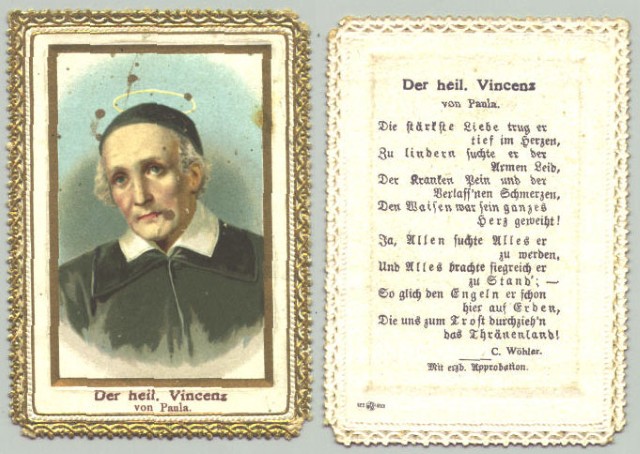 Der heil. Vincenz
von Paula.
Der heil. Vincenz
von Paula.
Die stärkste Liebe trug er
tief im Herzen,
Zu lindern suchte er der
Armen Leid,
Der Kranken Pein und der
Verlass'nen Schmerzen,
Den Waisen war sein ganzes
Herz geweiht!
Ja, Allen suchte Alles er
zu werden,
Und Alles brachte siegreich er
zu Stand'; —
So glich den Engeln er schon
hier auf Erden,
Die uns zum Trost durchzieh'n
das Thränenland!
C. Wöhler.
Mit erzb. Approbation.